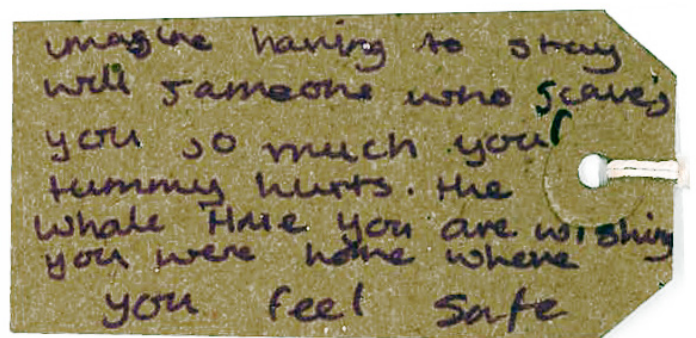 imagine having to stay
with someone who scares
you so much your
tummy hurts. the
whole time you are wishing
you were home where
you feel safe